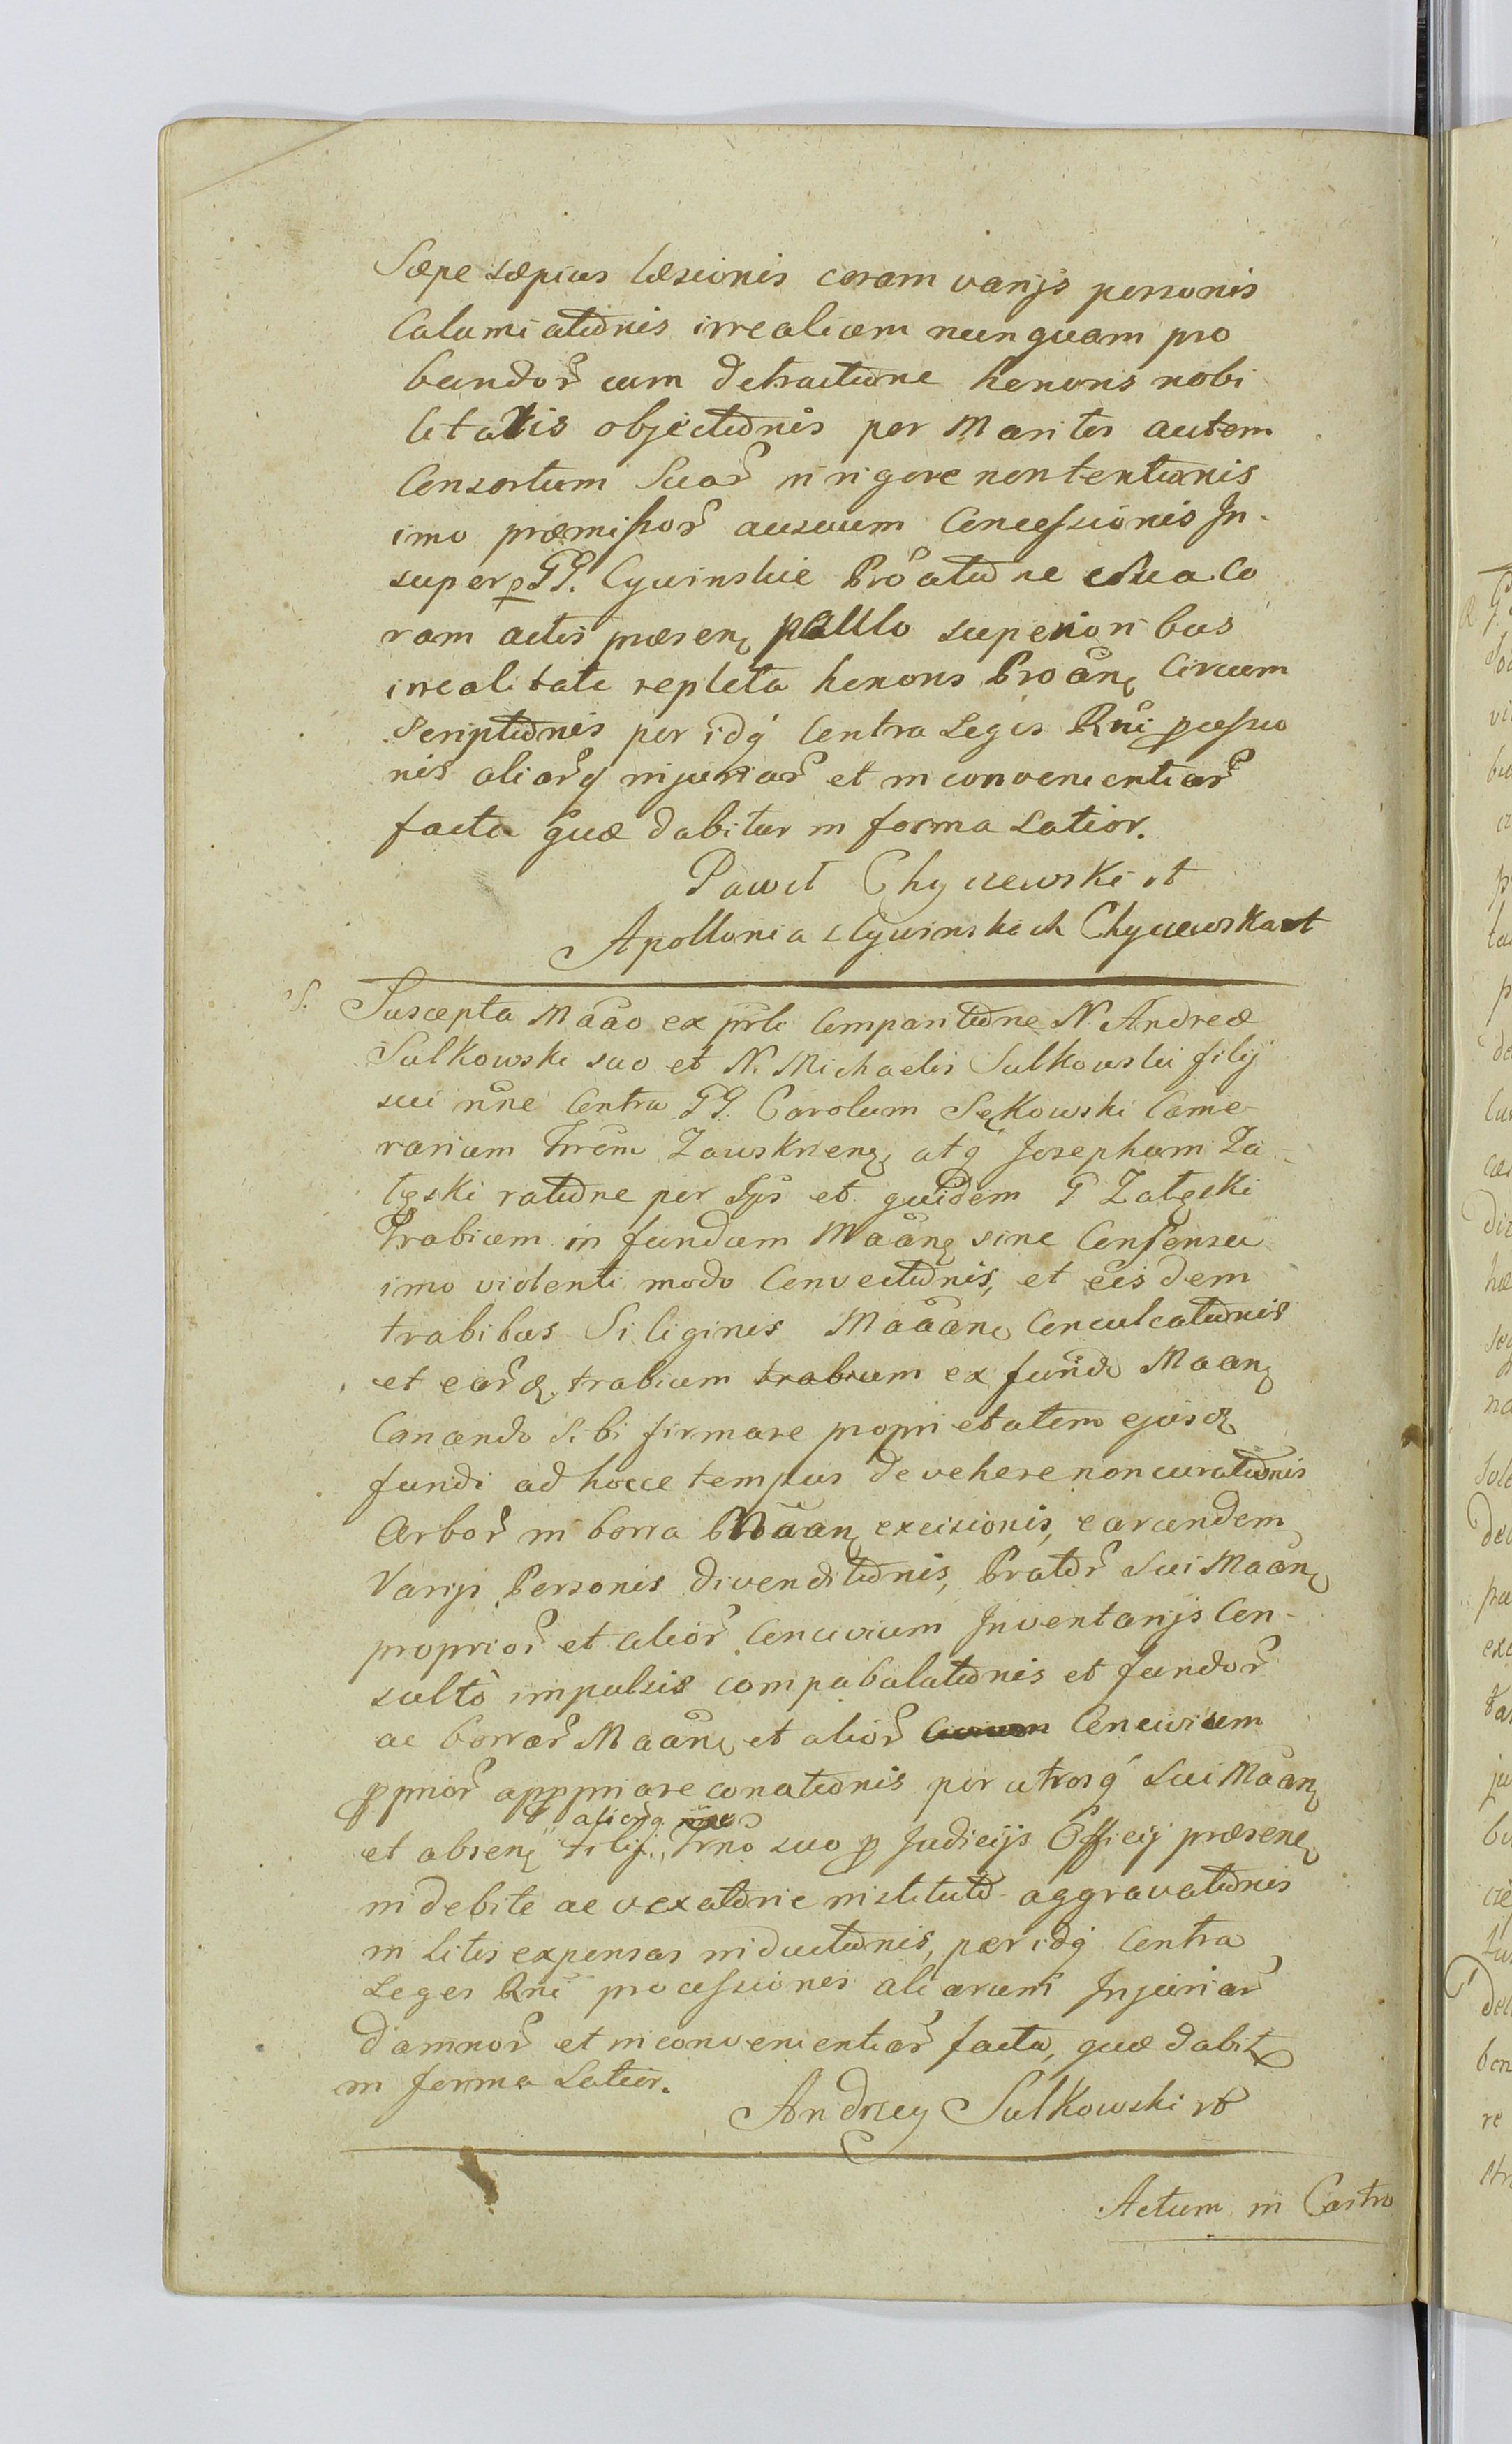 Sæpe sæpius læsionis coram varijs personis
Calumiationis irrealium nunquam pro
bandor cum detractione honoris nobi
litatis objectionis per Maritos autem
Consortum Suar in rigore nontentionis
imo præmissor ausuum Concessionis In-
super p GG. Cywinskie Proatione sua co
ram actis præsen paulo superioribus
irrealitate repleta honoris Proan Circum
scriptionis per idq Contra Leges Rni pcessio
nis aliarq injuriar et inconvenientiar
facta quæ dabitur in forma Latior.
Paweł Chyczewski mp
Apollonia Cywinskich Chyczewska mp
S. Suscepta Maão ex prli Comparitione N. Andreæ
Sulkowski suo et N. Michaelis Sulkowski filij
sui nne Contra GG. Carolum Sękowski Came
rarium Trem Zawskrzen atq Josephum Za
łęski ratione per Ipos et quidem G Załęski
Trabium in fundum Maan sine Consensu
imo violenti modo Convectionis, et eisdem
trabibus Siliginis Maaan Conculcationis
et earq trabium trabium ex fundo Maan
Conando Sibi firmare proprietatem ejusq
fundi ad hocce tempus devehere non curationis
Arbor in borra Maan excisionis, earundem
Varijs Personis divenditionis, Prator Sui Maan
proprior et alior Concivium Inventarijs Con-
sultò impulsis compabulationis et fundor
ac borrar Maan et alior Concivium
pprior apppriare conationis per utrosq Sui Maan
aliorq
et absen filij Trno suo p Judicijs Officij præsen
indebite ac vexatorie institut aggravationis
in Litis expensas inductionis, per idq Contra
Leges Rni processionis aliarum Injuriar
damnor et inconvenientiar facta, quæ dabit
in forma Latior.
Andrzey Sulkowski mp
Actum in Castro